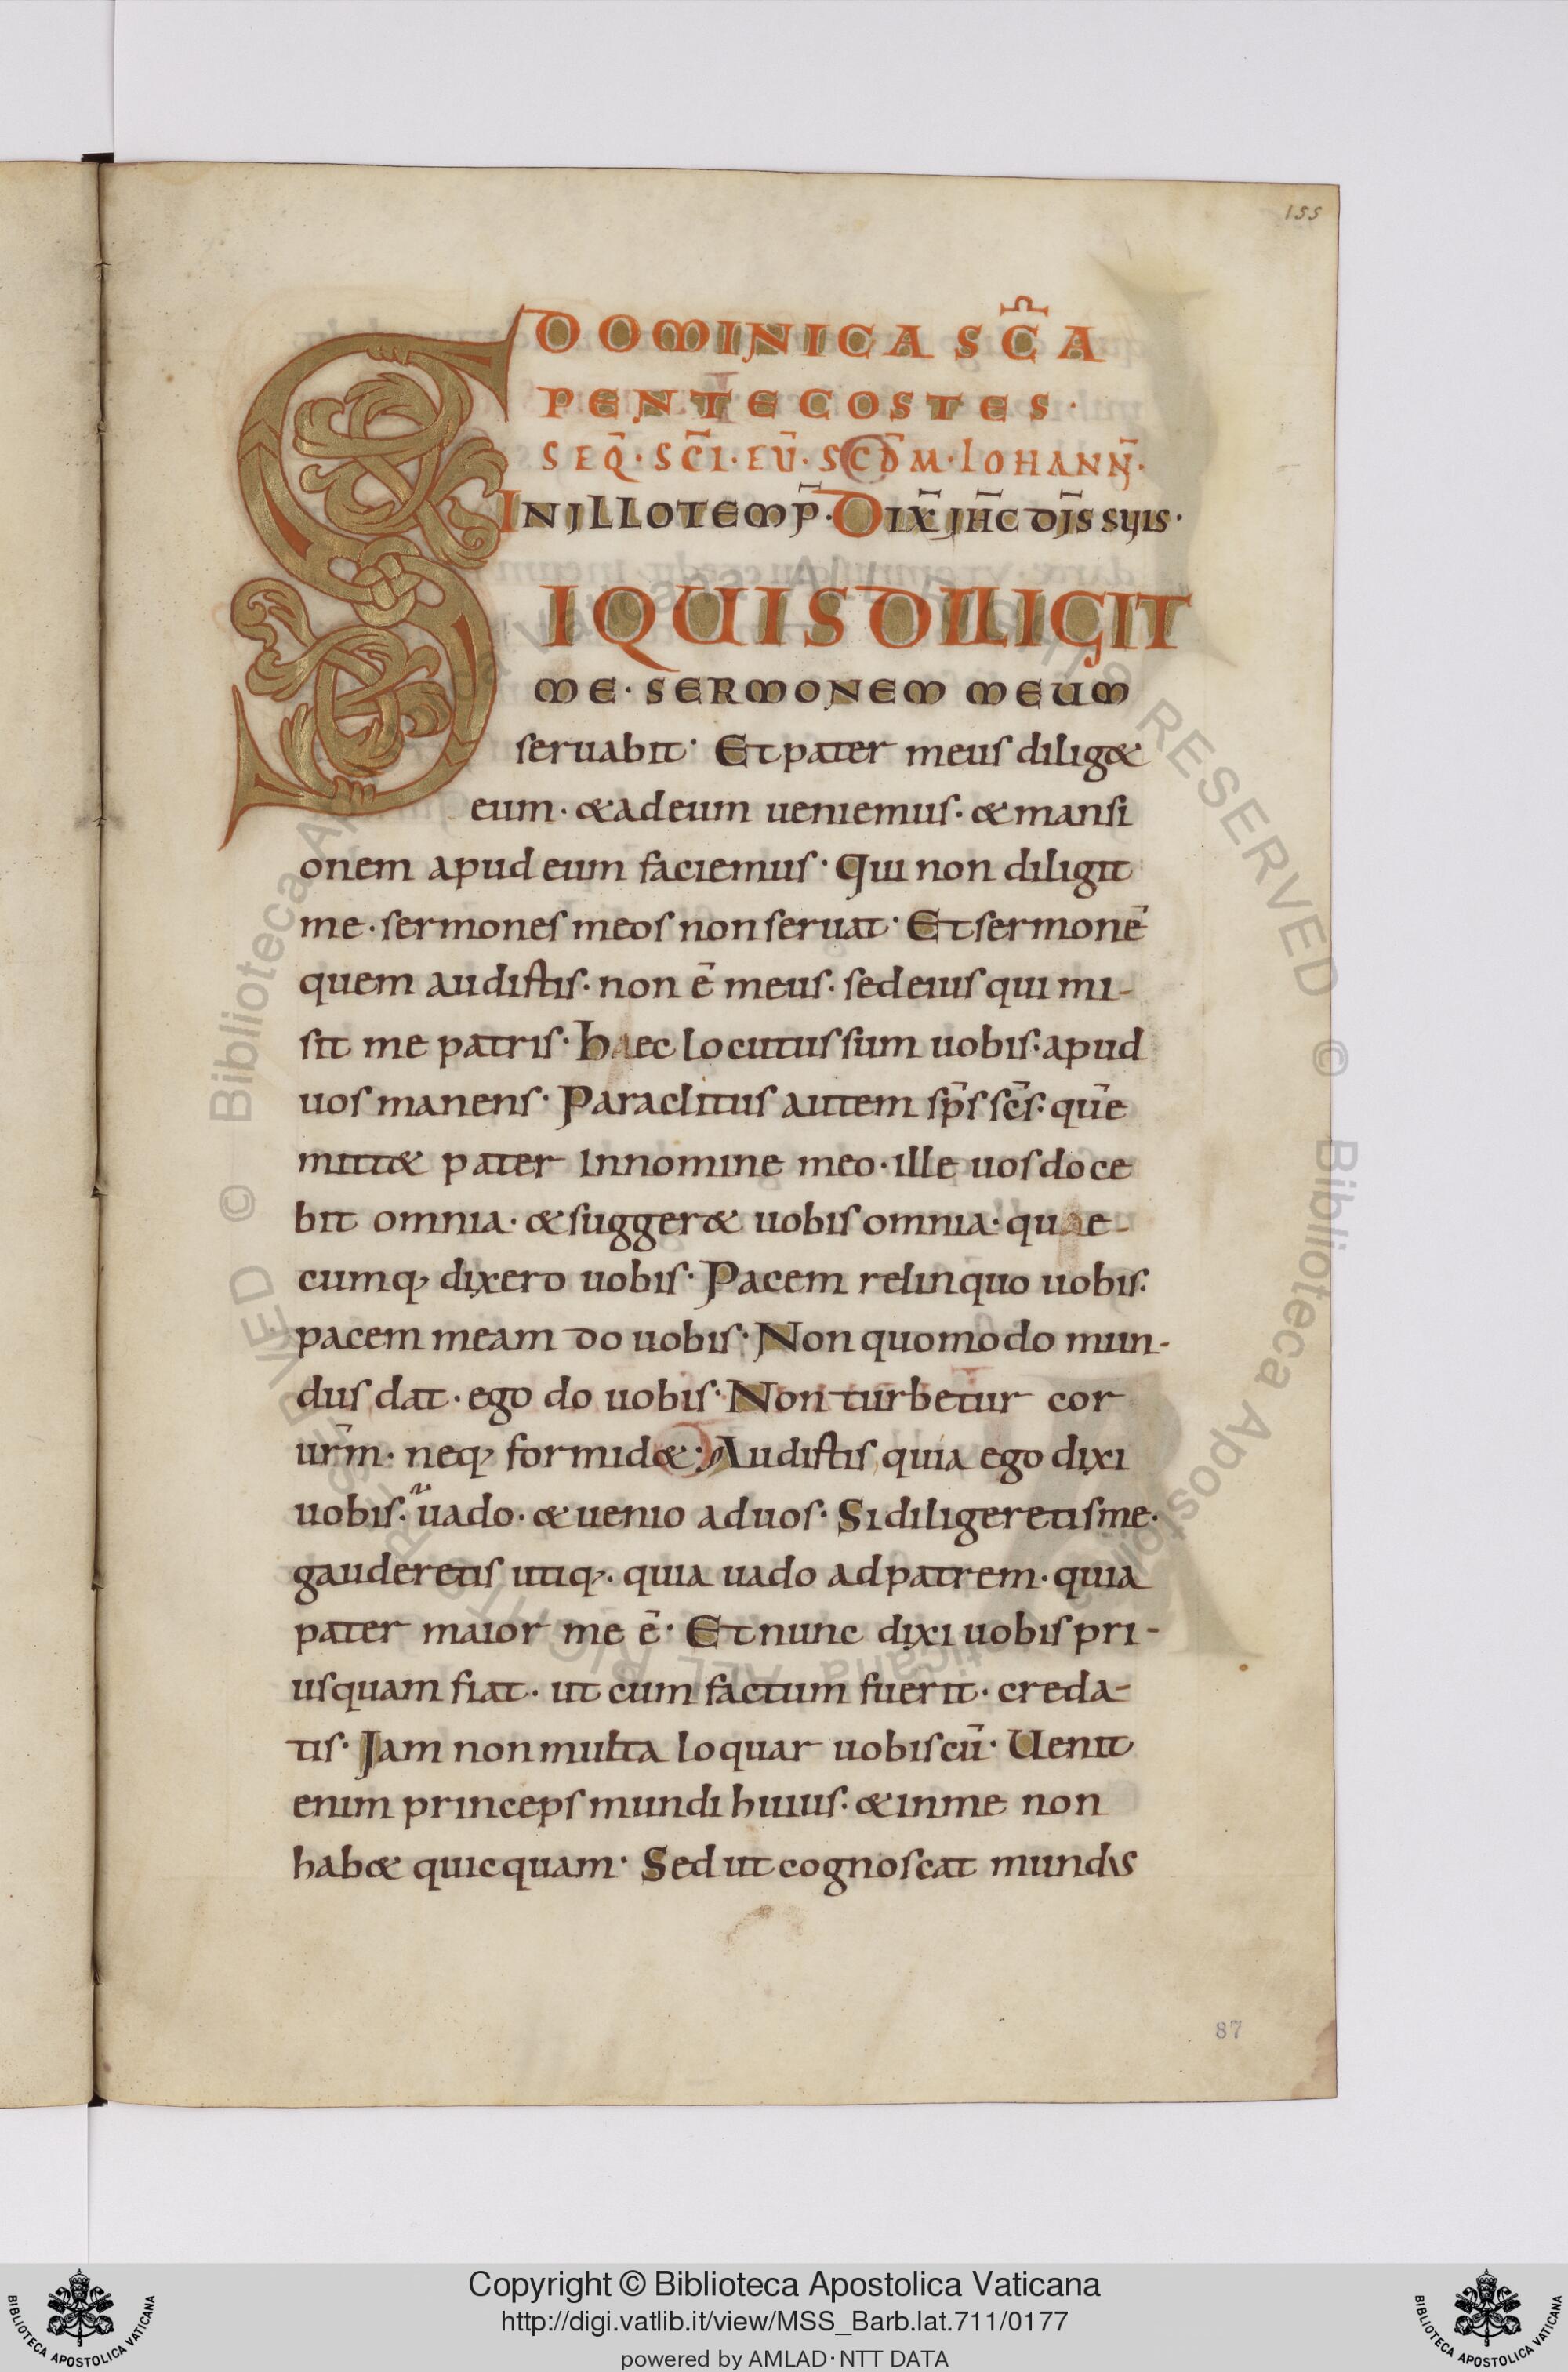 155
DOMINICA SC̄A
PENTECOSTES·
SEQ̄·SC̄I·EŪ·SC̄DM·IOHANN̄·
IN ILLO TEMP̄·DIX̄ IHC̄ DIS̄ SUIS·
SI QUIS DILIGIT
ME·SERMONEM MEUM
seruabit· Et pater meus diliget
eum· & ad eum ueniemus· & mansi
onem apud eum faciemus· Qui non diligit
me· sermones meos non seruat· Et sermonē
quem audistis· non ē meus· sed eius qui mi-
sit me patris· Haec locutus sum uobis· apud
uos manens· Paraclitus autem sp̄s sc̄s· quē
mitt& pater in nomine meo· ille uos doce
bit omnia· & sugger& uobis omnia· quae-
cumq; dixero uobis· Pacem relinquo uobis·
pacem meam do uobis· Non quomodo mun-
dus dat· ego do uobis· Non turbetur cor
ur̄m· neq; formid&· Audistis quia ego dixi
uobis· uado· & uenio ad uos· Si diligeretis me·
gauderetis utiq;· quia uado ad patrem· quia
pater maior me ē· Et nunc dixi uobis pri-
usquam fiat· ut cum factum fuerit· creda-
tis· Jam non multa loquar uobiscū· Uenit
enim princeps mundi huius· & in me non
hab& quicquam· Sed ut cognoscat mundus
87
© Biblioteca Apostolica Vaticana ALL RIGHTS RESERVED
Copyright © Biblioteca Apostolica Vaticana
http://digi.vatlib.it/view/MSS_Barb.lat.711/0177
powered by AMLAD·NTT DATA
BIBLIOTECA APOSTOLICA VATICANA
BIBLIOTECA APOSTOLICA VATICANA